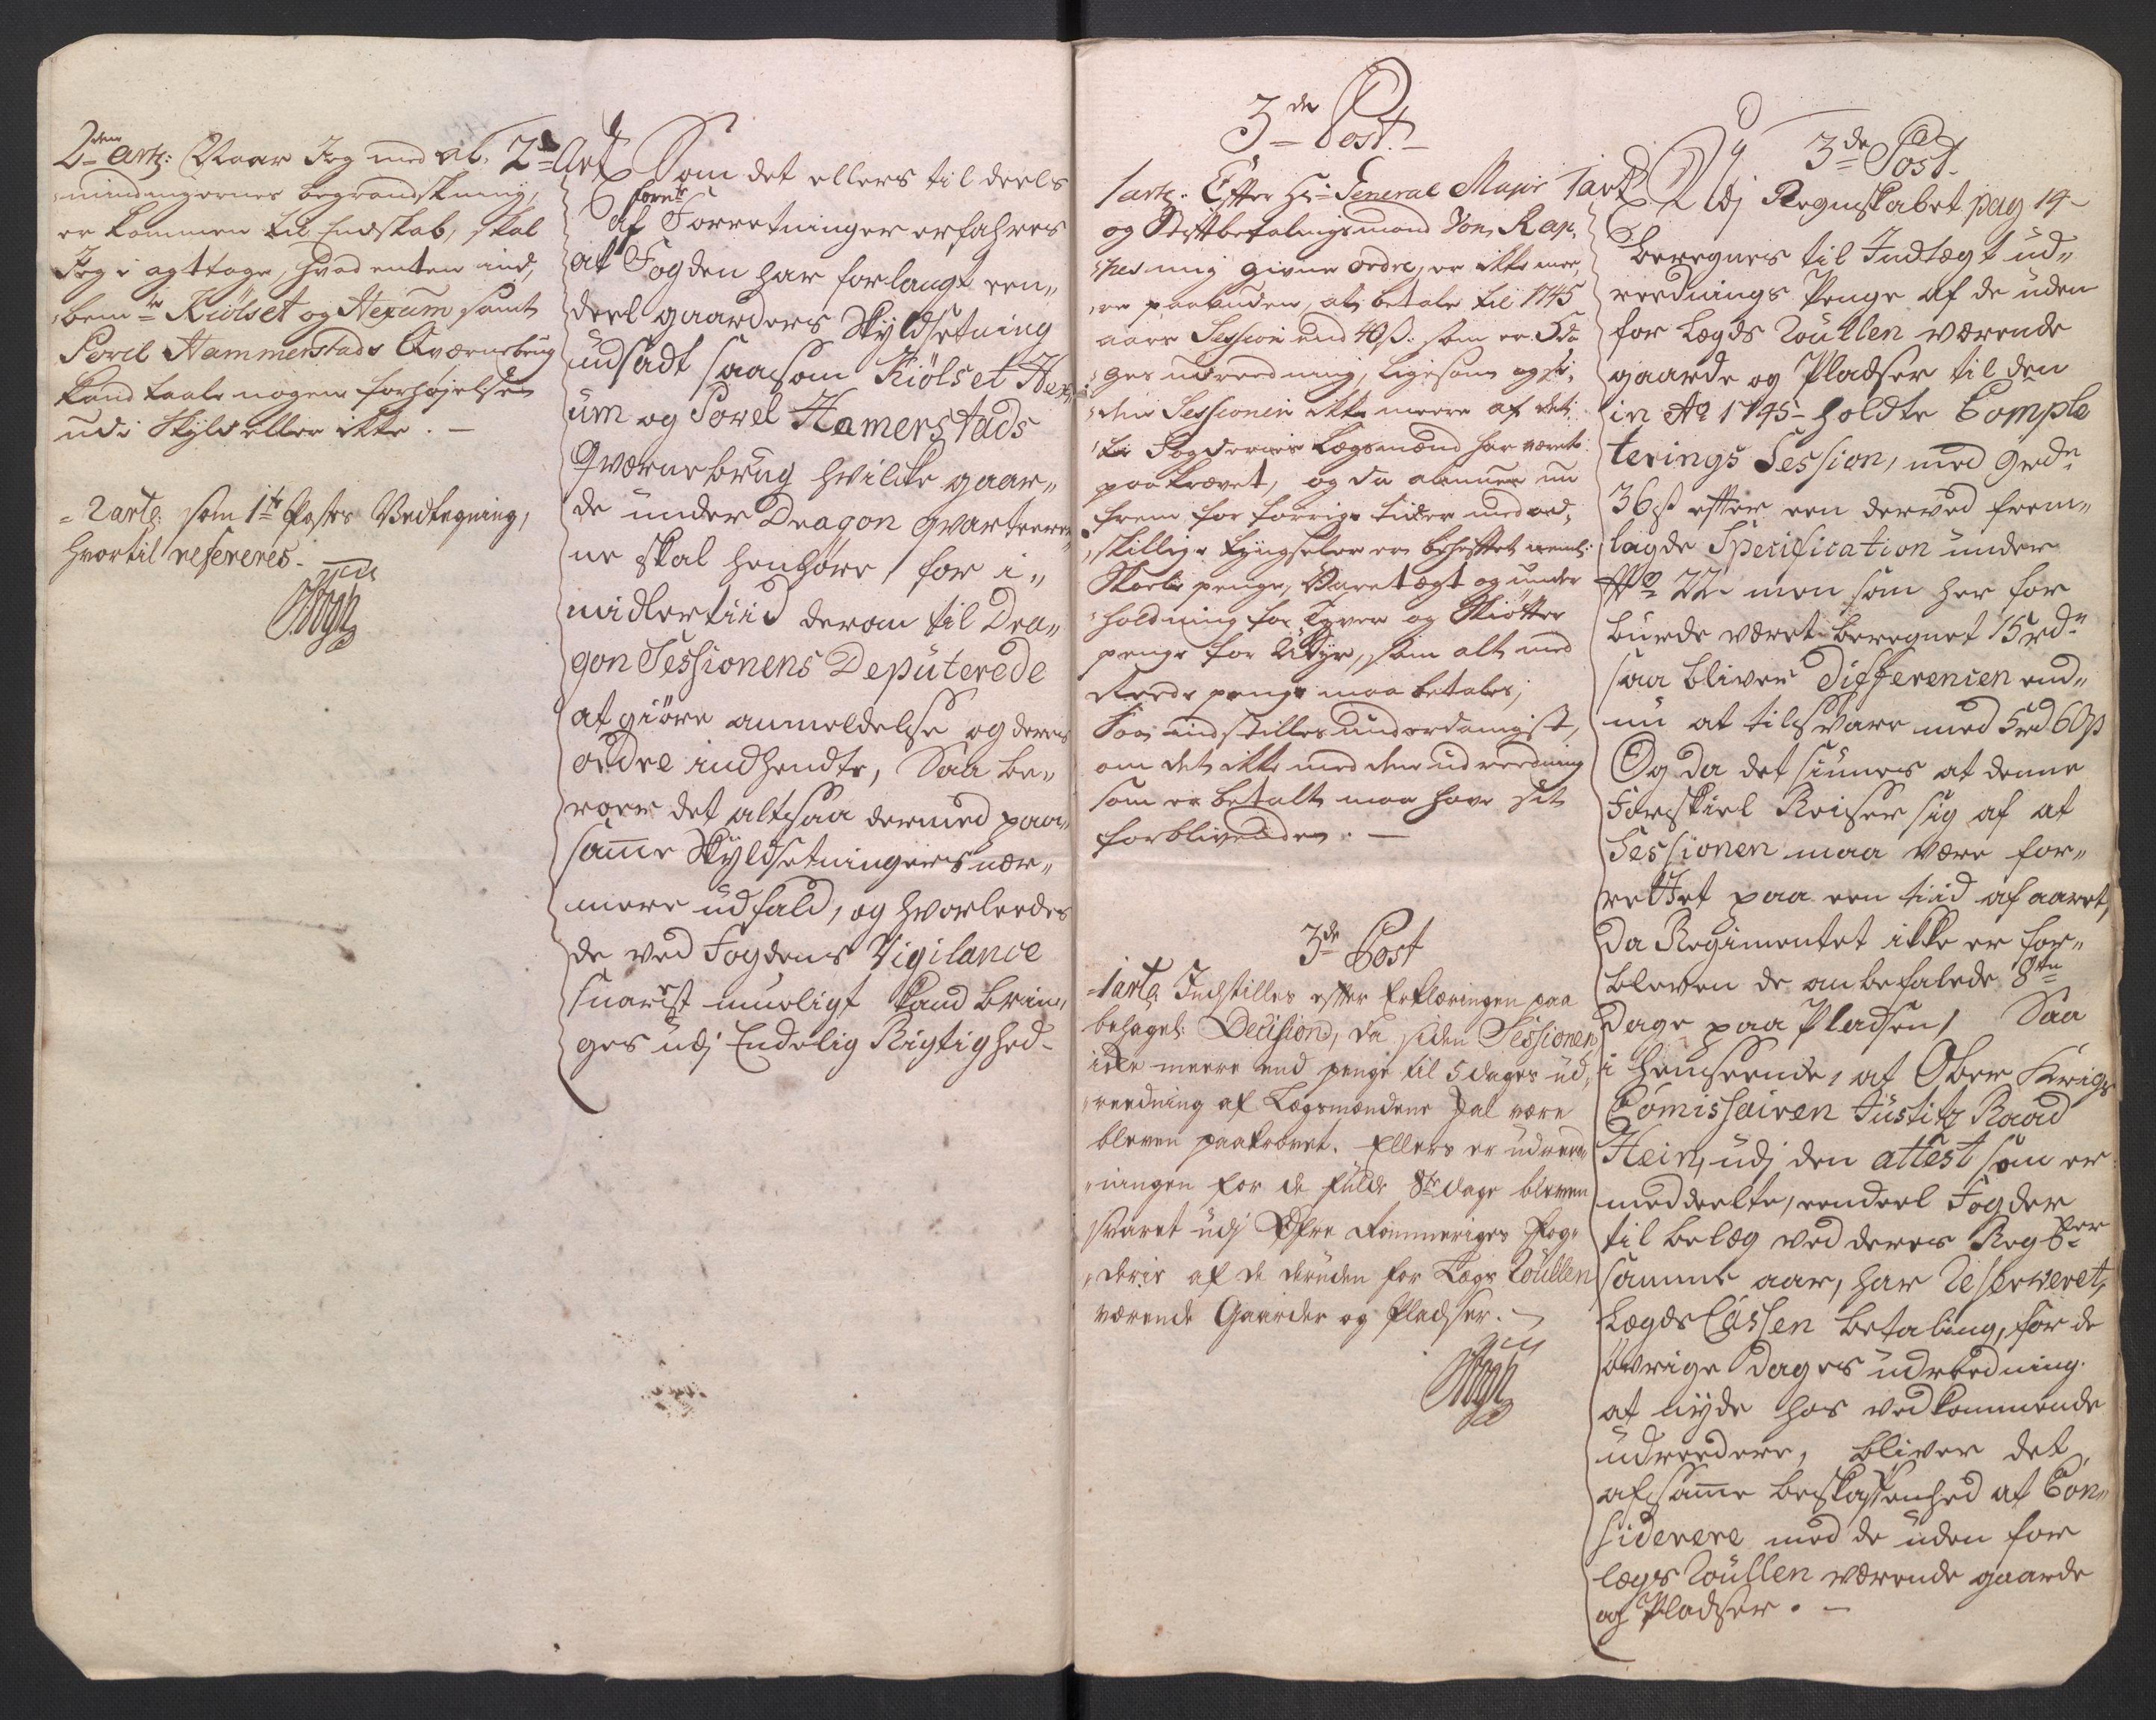 2den art: Naar Jeg med al-
mindingernes begrandskning,
er kommen til Endskab, skal
Jeg i agttage, hvad enten ind,
bemte Kiölset og Hexum samt
Povel Hammerstads Qværnebrug
kand taale nogen forhøjelse
udi Skyld eller ikke. —
2 art: som 1te Posts Vedtegning,
hvortil refereres.
2de Art
Som det ellers til deels
af forne Forretninger erfahres
at Fogden har forlangt een„
deel gaarders Skyldsetning
udsadt saasom Kiölset Hex„
um og Povel Hamerstads
Qværnebrug hvilke gaar„
de under Dragon qvarteerer„
ne skal henhøre, for i„
midlertiid derom til Dra„
gon Sessionens Deputerede
at giøre anmeldelse og deres
ordre indhendte, Saa be„
roer det altsaa dermed paa
samme Skyldsetningers nær„
mere udfald, og hvorleedes
de ved Fogdens Vigilance
snarest mueligt kand brin„
ges udj Endelig Rigtighed-
3de Post. —
1 art: Efter Hr General Major
og Stiftbefalingsmand Von Rap„
pes mig givne ordre, er ikke mee„
re paabuden, at betale til 1745
aars Session end 40 ß: som er 5 da
ges udreedning, ligesom og si„
den Sessionen ikke meere af det
Fogderies Lægsmænd har været
paakrævet, og da almuen nu
frem for forrige tider med ad„
skillige byngseler er behæftet
penge, Varetægt og under
holdning for Tyver og Skiötter
penge for Udyr, som alt med
Reede penge maa betales,
Saa indstilles underdanigst,
om det ikke med den udreedning
som er betalt maa have sit
forblivende. —
3de Post
1 art: Indstilles efter Erklæringen paa
behagel: Decision, da siden Sessionen
icke meere end penge til 5 dages ud„
reedning af Lægsmændene skal være
bleven paakrævet. Ellers er udreed„
ningen for de fulde 8te dage bleven
svaret udj Øfre Rommeriges Fog„
derie af de deruden for Lægs Roullen
værende Gaarder og Pladser.
3de Post.
1 art
Udj Regnskabet pag 19-
beregnes til Indtægt ud„
reednings Penge af de uden
for Lægds Roullen værende
gaarde og Pladser til den
in Ao 1745- holdte Comple
terings Session, med 9 rdr
36 ß efter een derved frem„
lagde Specification under
No 22 men som her for
burde været beregnet 15 rdr
saa bliver Differencen end„
nu at tilsvare med 5 rd 60 ß
Og da det siunes at denne
Forskiel Reiser sig af at
Sessionen maa være for„
rettet paa een tiid af aaret,
da Regimentet ikke er for„
bleven de anbefalede 8te
dage paa Pladsen, Saa
i henseende, at Ober Krigs
Comissairen Justitz Raad
Hein, udj den attest som er
meddeelte, eendeel Fogder
til belæg ved deres Regskber
samme aar, har Reserveret,
Lægds Cassen betaling, for de
øvrige dages udreedning.
at nyde hos vedkommende
udreedere, bliver det
af samme beskaffenhed at Con„
siderere med de uden for
læggs Roullen værende gaarde
og Pladser. —